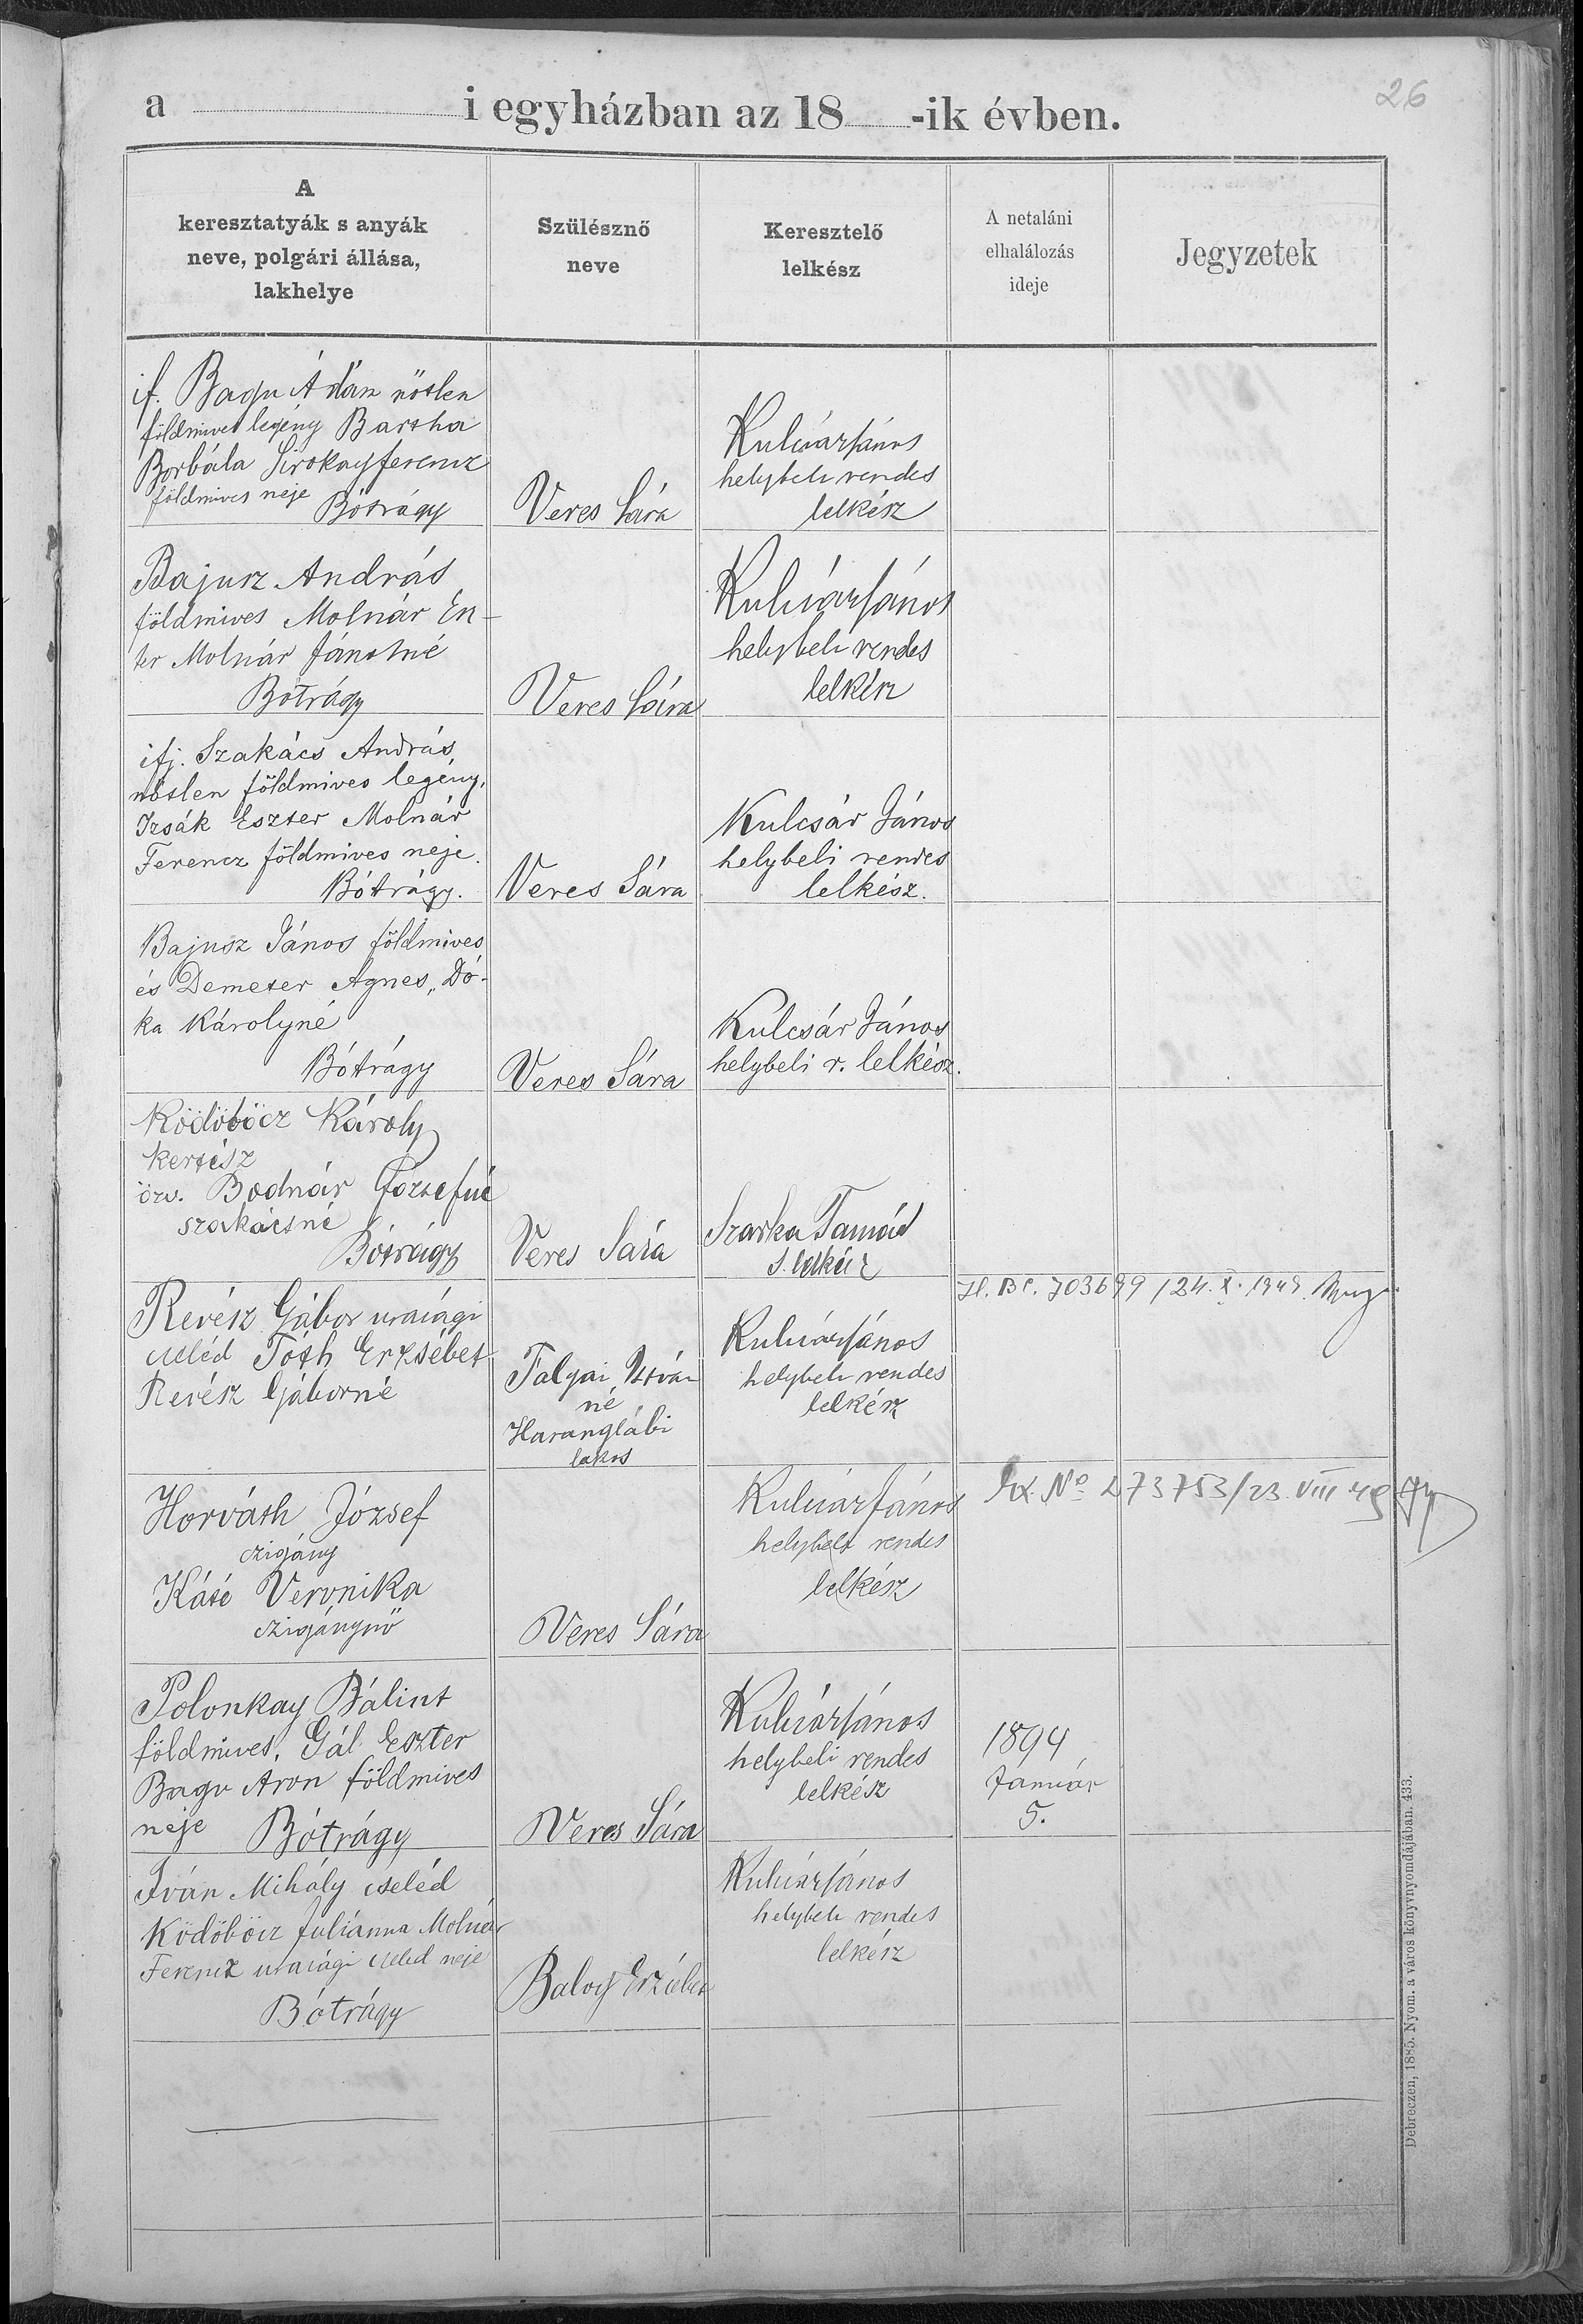 26
a i egyházban az 18 -ik évben.
A
keresztatyák s anyák
neve, polgári állása,
lakhelye
Szülésznő
neve
Keresztelő
lelkész
A netaláni
elhalálozás
ideje
Jegyzetek
if. Bagu Ádám nőtlen
földmives legény Bartha
Borbála Sirokay Ferencz
földmives neje
Bótrágy
Veres Sára
Kulcsár János
helybeli rendes
lelkész
Bajusz András
földmives Molnár Esz-
ter Molnár Jánosné
Bótrágy
Veres Sára
Kulcsár János
helybeli rendes
lelkész
ifj. Szakács András,
nőtlen földmives legény,
Izsák Eszter Molnár
Ferencz földmives neje.
Bótrágy.
Veres Sára
Kulcsár János
helybeli rendes
lelkész.
Bajusz János földmives
és Demeter Ágnes, Dó-
ka Károlyné
Bótrágy
Veres Sára
Kulcsár János
helybeli r. lelkész.
Ködöböcz Károly
kertész
özv. Bodnár Józsefné
szakácsné
Bótrágy
Veres Sára
Szarka Tamás
s. lelkész
Révész Gábor urasági
cseléd Tóth Erzsébet
Révész Gáborné
Talyai István
né
Haranglábi
lakos
Kulcsár János
helybeli rendes
lelkész
703699 / 24. X. 1949.
Horváth József
czigány
Káté Veronika
czigánynő
Veres Sára
Kulcsár János
helybeli rendes
lelkész
No 273753/23 VIII 49
Polonkay Bálint
földmives, Gál Eszter
Bagu Áron földmives
neje Bótrágy
Veres Sára
Kulcsár János
helybeli rendes
lelkész
1894
Január
5.
Iván Mihály cseléd
Ködöböcz Juliánna Molnár
Ferencz urasági cseléd neje
Bótrágy
Balog Erzsébet
Kulcsár János
helybeli rendes
lelkész
Debreczen, 1885. Nyom. a város könyvnyomdájában. 433.